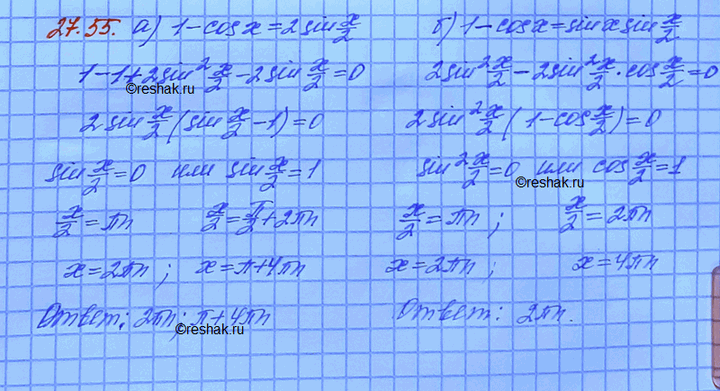 27.55. а) 1-cos x = 2 sin x/2
1-1+2sin² x/2 - 2sin x/2 = 0
©reshak.ru
2 sin x/2 (sin x/2 - 1) = 0
sin x/2 = 0 или sin x/2 = 1
x/2 = πn x/2 = π/2 + 2πn
x = 2πn; x = π+4πn
Ответ: 2πn; π+4πn
©reshak.ru
б) 1-cos x = sin x sin x/2
2sin² x/2 - 2sin² x/2 · cos x/2 = 0
2 sin² x/2 (1-cos x/2) = 0
sin² x/2 = 0 или cos x/2 = 1
©reshak.ru
x/2 = πn; x/2 = 2πn
x = 2πn; x = 4πn
Ответ: 2πn.